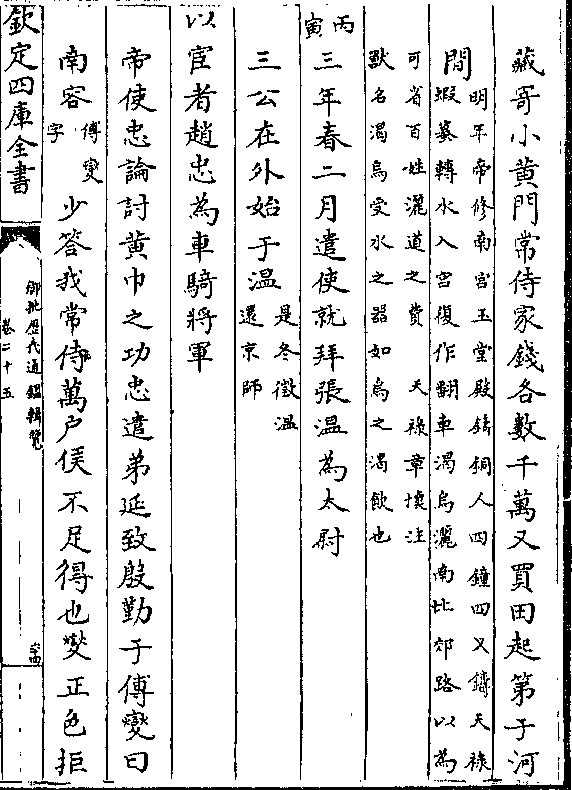 藏寄小黃門常侍家錢各數千萬又買田起第于河
間
明年帝修南宮玉堂殿鑄銅人四鐘四又鑄天祿
蝦蟇轉水入宮復作翻車渴烏灑南北郊路以為
可省百姓灑道之費 天祿章懷注
獸名渴烏受水之器如烏之渴飲也
丙寅三年春二月遣使就拜張溫為太尉
三公在外始于溫
是冬徵溫
還京師
以宦者趙忠為車騎將軍
帝使忠論討黃巾之功忠遣弟延致殷勤于傅燮曰
南容
傅燮
字
少答我常侍萬户侯不足得也燮正色拒
欽定四庫全書
御批歷代通鑑輯覽
卷二十五